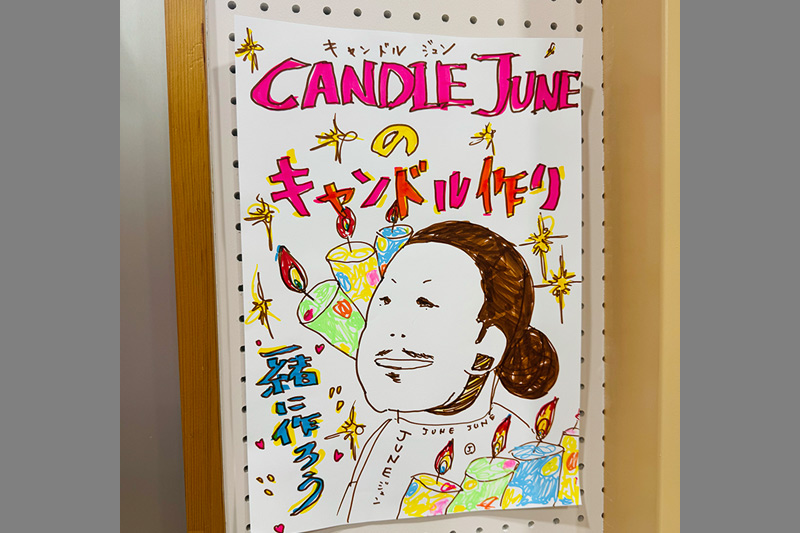 キャンドル ジュン
CANDLE JUNE
の
キャンドル作り
一緒に作ろう
JUNE JUNE
JUNE ジュン